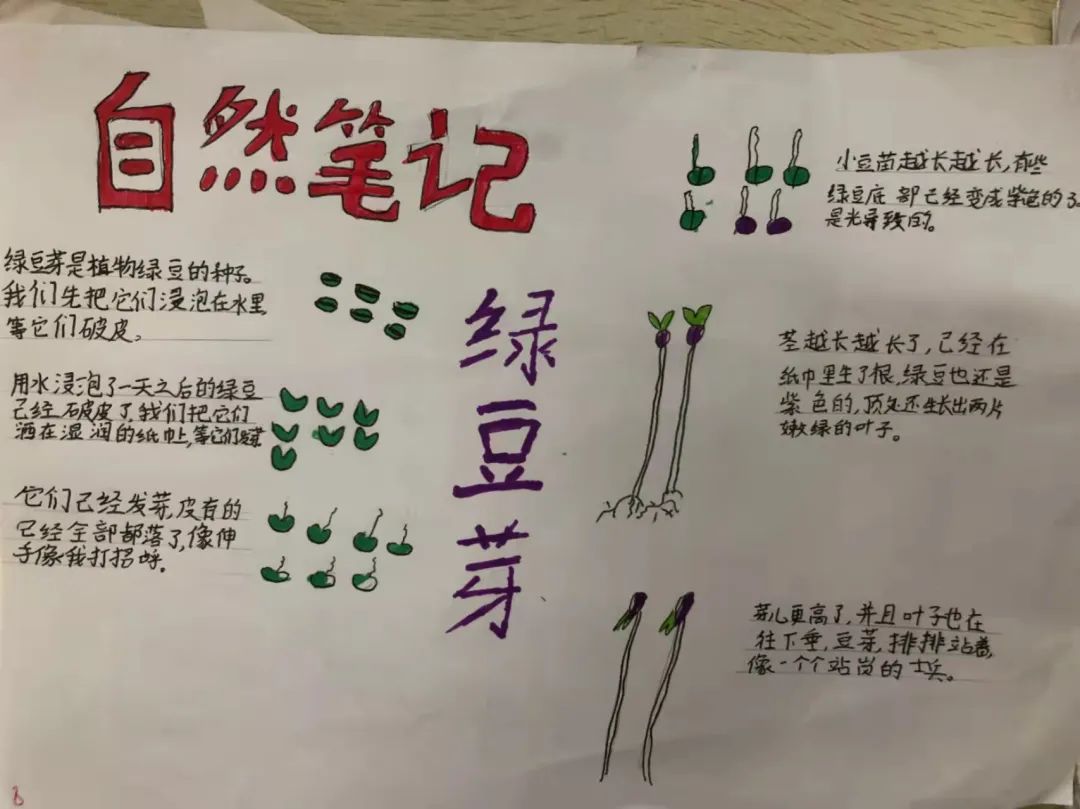 自然笔记
绿豆芽是植物绿豆的种子。
我们先把它们浸泡在水里
等它们破皮。
用水浸泡了一天之后的绿豆
已经破皮了,我们把它们
洒在湿润的纸巾上,等它们发芽
它们已经发芽,皮有的
已经全部都落了,像伸
手像我打招呼。
绿豆芽
小豆苗越长越长,有些
绿豆底部已经变成紫色的了
是光导致的。
茎越长越长了,已经在
纸巾里生了根,绿豆也还是
紫色的,顶处还生长出两片
嫩绿的叶子。
芽儿更高了,并且叶子也在
往下垂,豆芽,排排站着,
像一个个站岗的士兵。